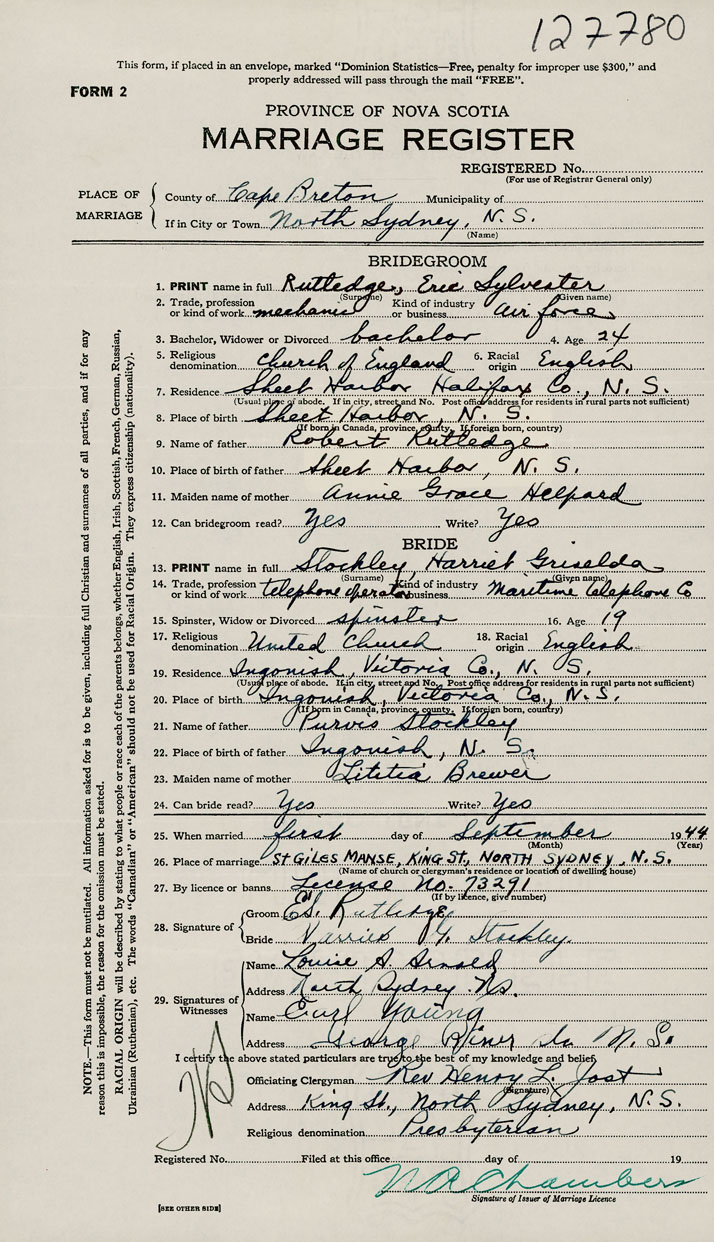 127780
This form, if placed in an envelope, marked "Dominion Statistics—Free, penalty for improper use $300," and
properly addressed will pass through the mail "FREE".
FORM 2
PROVINCE OF NOVA SCOTIA
MARRIAGE REGISTER
REGISTERED No.
(For use of Registrar General only)
PLACE OF MARRIAGE
County of Cape Breton Municipality of
If in City or Town North Sydney, N. S.
(Name)
BRIDEGROOM
1. PRINT name in full Rutledge, Eric Sylvester
(Surname) (Given name)
2. Trade, profession or kind of work mechanic Kind of industry or business air force
3. Bachelor, Widower or Divorced bachelor 4. Age 24
5. Religious denomination Church of England 6. Racial origin English
7. Residence Sheet Harbor Halifax Co., N. S.
(Usual place of abode. If in city, street and No. Post office address for residents in rural parts not sufficient)
8. Place of birth Sheet Harbor, N. S.
(If born in Canada, province, county. If foreign born, country)
9. Name of father Robert Rutledge
10. Place of birth of father Sheet Harbor, N. S.
11. Maiden name of mother Annie Grace Helpard
12. Can bridegroom read? Yes Write? Yes
BRIDE
13. PRINT name in full Stockley, Harriet Griselda
(Surname) (Given name)
14. Trade, profession or kind of work telephone operator Kind of industry or business Maritime Telephone Co
15. Spinster, Widow or Divorced spinster 16. Age 19
17. Religious denomination United Church 18. Racial origin English
19. Residence Ingonish, Victoria Co., N. S.
(Usual place of abode. If in city, street and No. Post office address for residents in rural parts not sufficient)
20. Place of birth Ingonish, Victoria Co., N. S.
(If born in Canada, province, county. If foreign born, country)
21. Name of father Purvis Stockley
22. Place of birth of father Ingonish, N. S.
23. Maiden name of mother Lititia Brewer
24. Can bride read? Yes Write? Yes
25. When married first day of September 1944
(Month) (Year)
26. Place of marriage ST GILES MANSE, KING ST, NORTH SYDNEY, N. S.
(Name of church or clergyman's residence or location of dwelling house)
27. By licence or banns License No. 73291
(If by licence, give number)
28. Signature of
Groom E.S. Rutledge
Bride Harriet G. Stockley
29. Signatures of Witnesses
Name Louise A. Arnold
Address North Sydney N.S.
Name Young
Address George River N. S.
I certify the above stated particulars are true to the best of my knowledge and belief.
Officiating Clergyman Rev Henry L. Jost
(Signature)
Address King St., North Sydney, N. S.
Religious denomination Presbyterian
Registered No. Filed at this office day of 19
N R Chambers
Signature of Issuer of Marriage Licence
[SEE OTHER SIDE]
NOTE.—This form must not be mutilated. All information asked for is to be given, including full Christian and surnames of all parties, and if for any
reason this is impossible, the reason for the omission must be stated.
RACIAL ORIGIN will be described by stating to what people or race each of the parents belongs, whether English, Irish, Scottish, French, German, Russian,
Ukrainian (Ruthenian), etc. The words "Canadian" or "American" should not be used for Racial Origin. They express citizenship (nationality).